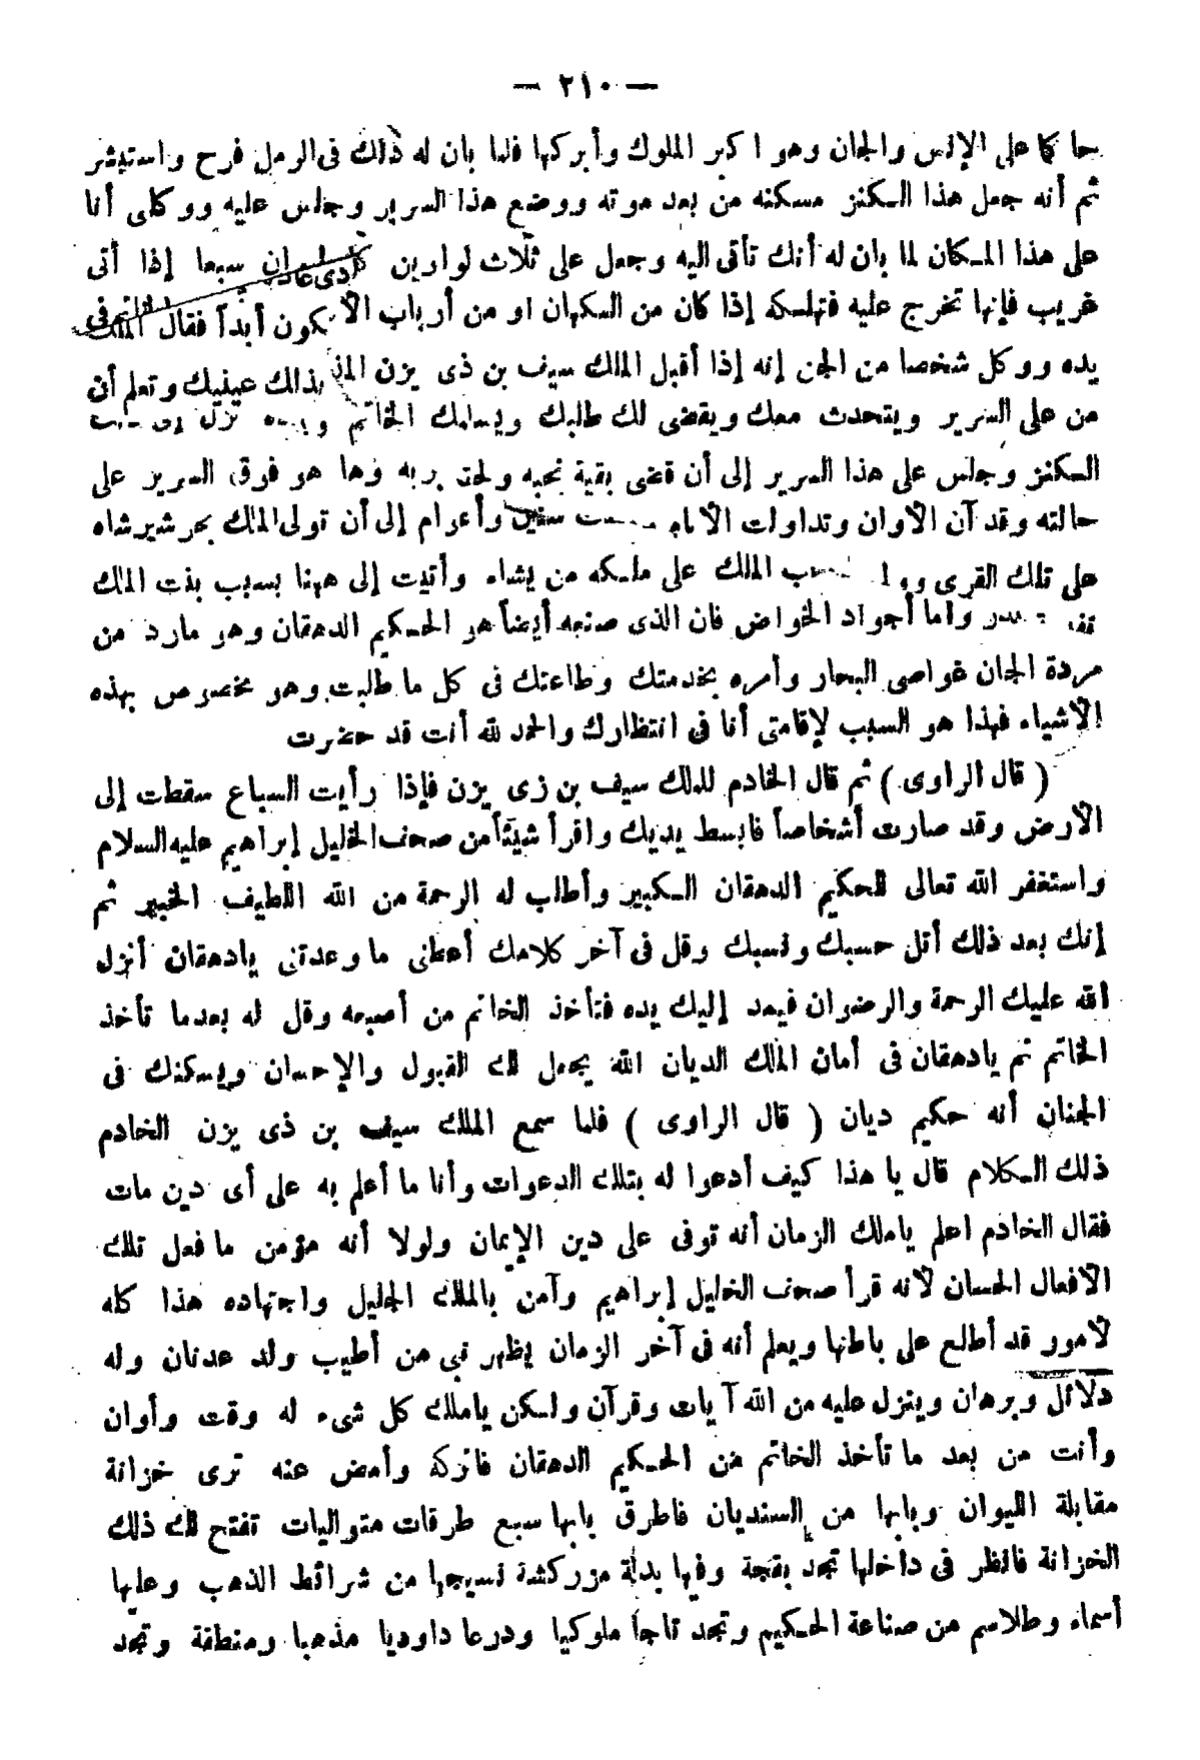 — ٢١٠ —
حاكما على الإنس والجان وهو اكبر الملوك وأبركها فلما بان له ذلك فى الرمل فرح واستبشر
ثم أنه جعل هذا الكنز مسكنه من بعد موته ووضع هذا السرير وجلس عليه ووكلى أنا
على هذا المكان لما بان له أنك تأتى اليه وجعل على ثلاث لواوين سبعا إذا أتى
غريب فإنها تخرج عليه فتهلكه إذا كان من الكهان او من أرباب يكون أبدأ فقال الملك
يده ووكل شخصا من الجن إنه إذا أقبل الملك سيف بن ذى يزن بذلك عينيك وتعلم أن
من على السرير ويتحدث معك ويقضى لك طلبك ويسلمك الخاتم نزل
الكنز وجلس على هذا السرير إلى أن قضى بقية نحبه ولحق بربه وها هو فوق السرير على
حالته وقد آن الأوان وتداولت الأيام سنين وأعوام إلى أن تولى الملك بحر شير شاه
على تلك القرى الملك على ملكه من يشاء وأتيت إلى هينا بسبب بنت الملك
وأما أجواد الخواض فان الذى صنعه أيضاً هو الحكيم الدهقان وهو مارد من
مردة الجان غواصى البحار وأمره بخدمتك وطاعتك فى كل ما طلبت وهو مخصوص بهذه
الأشياء فهذا هو السبب لإقامتى أنا فى انتظارك والحمد لله أنت قد حضرت
( قال الراوى ) ثم قال الخادم للملك سيف بن زى يزن فإذا رأيت السباع سقطت إلى
الأرض وقد صارت أشخاصاً فابسط يديك واقرأ شيئاً من صحف الخليل إبراهيم عليه السلام
واستغفر الله تعالى للحكيم الدهقان الكبير وأطلب له الرحمة من الله اللطيف الخبير ثم
إنك بعد ذلك أتل حسبك ونسبك وقل فى آخر كلامك أعطنى ما وعدتنى يادهقان أنزل
الله عليك الرحمة والرضوان فيمد إليك يده فتأخذ الخاتم من أصبعه وقل له بعدما تأخذ
الخاتم نم يادهقان فى أمان الملك الديان الله يجعل لك القبول والإحسان ويسكنك فى
الجنان أنه حكيم ديان ( قال الراوى ) فلما سمع الملك سيف بن ذى يزن الخادم
ذلك الكلام قال يا هذا كيف أدعوا له بتلك الدعوات وأنا ما أعلم به على أى دين مات
فقال الخادم اعلم ياملك الزمان أنه توفى على دين الإيمان ولولا أنه مؤمن ما فعل تلك
الافعال الحسان لأنه قرأ صحف الخليل إبراهيم وآمن بالملك الجليل واجتهاده هذا كله
لأمور قد أطلع على باطنها ويعلم أنه فى آخر الزمان يظهر نبى من أطيب ولد عدنان وله
دلائل وبرهان وينزل عليه من الله آيات وقرآن ولكن ياملك كل شىء له وقت وأوان
وأنت من بعد ما تأخذ الخاتم من الحكيم الدهقان فاتركه وأمض عنه ترى خزانة
مقابلة الليوان وبابها من السنديان فاطرق بابها سبع طرقات متواليات تفتح لك ذلك
الخزانة فانظر فى داخلها تجد بقجة وفيها بدلة مزركشة نسيجها من شرائط الذهب وعليها
أسماء وطلاسم من صناعة الحكيم وتجد تاجاً ملوكيا ودرعا داوديا مذهبا ومنطقة وتجد